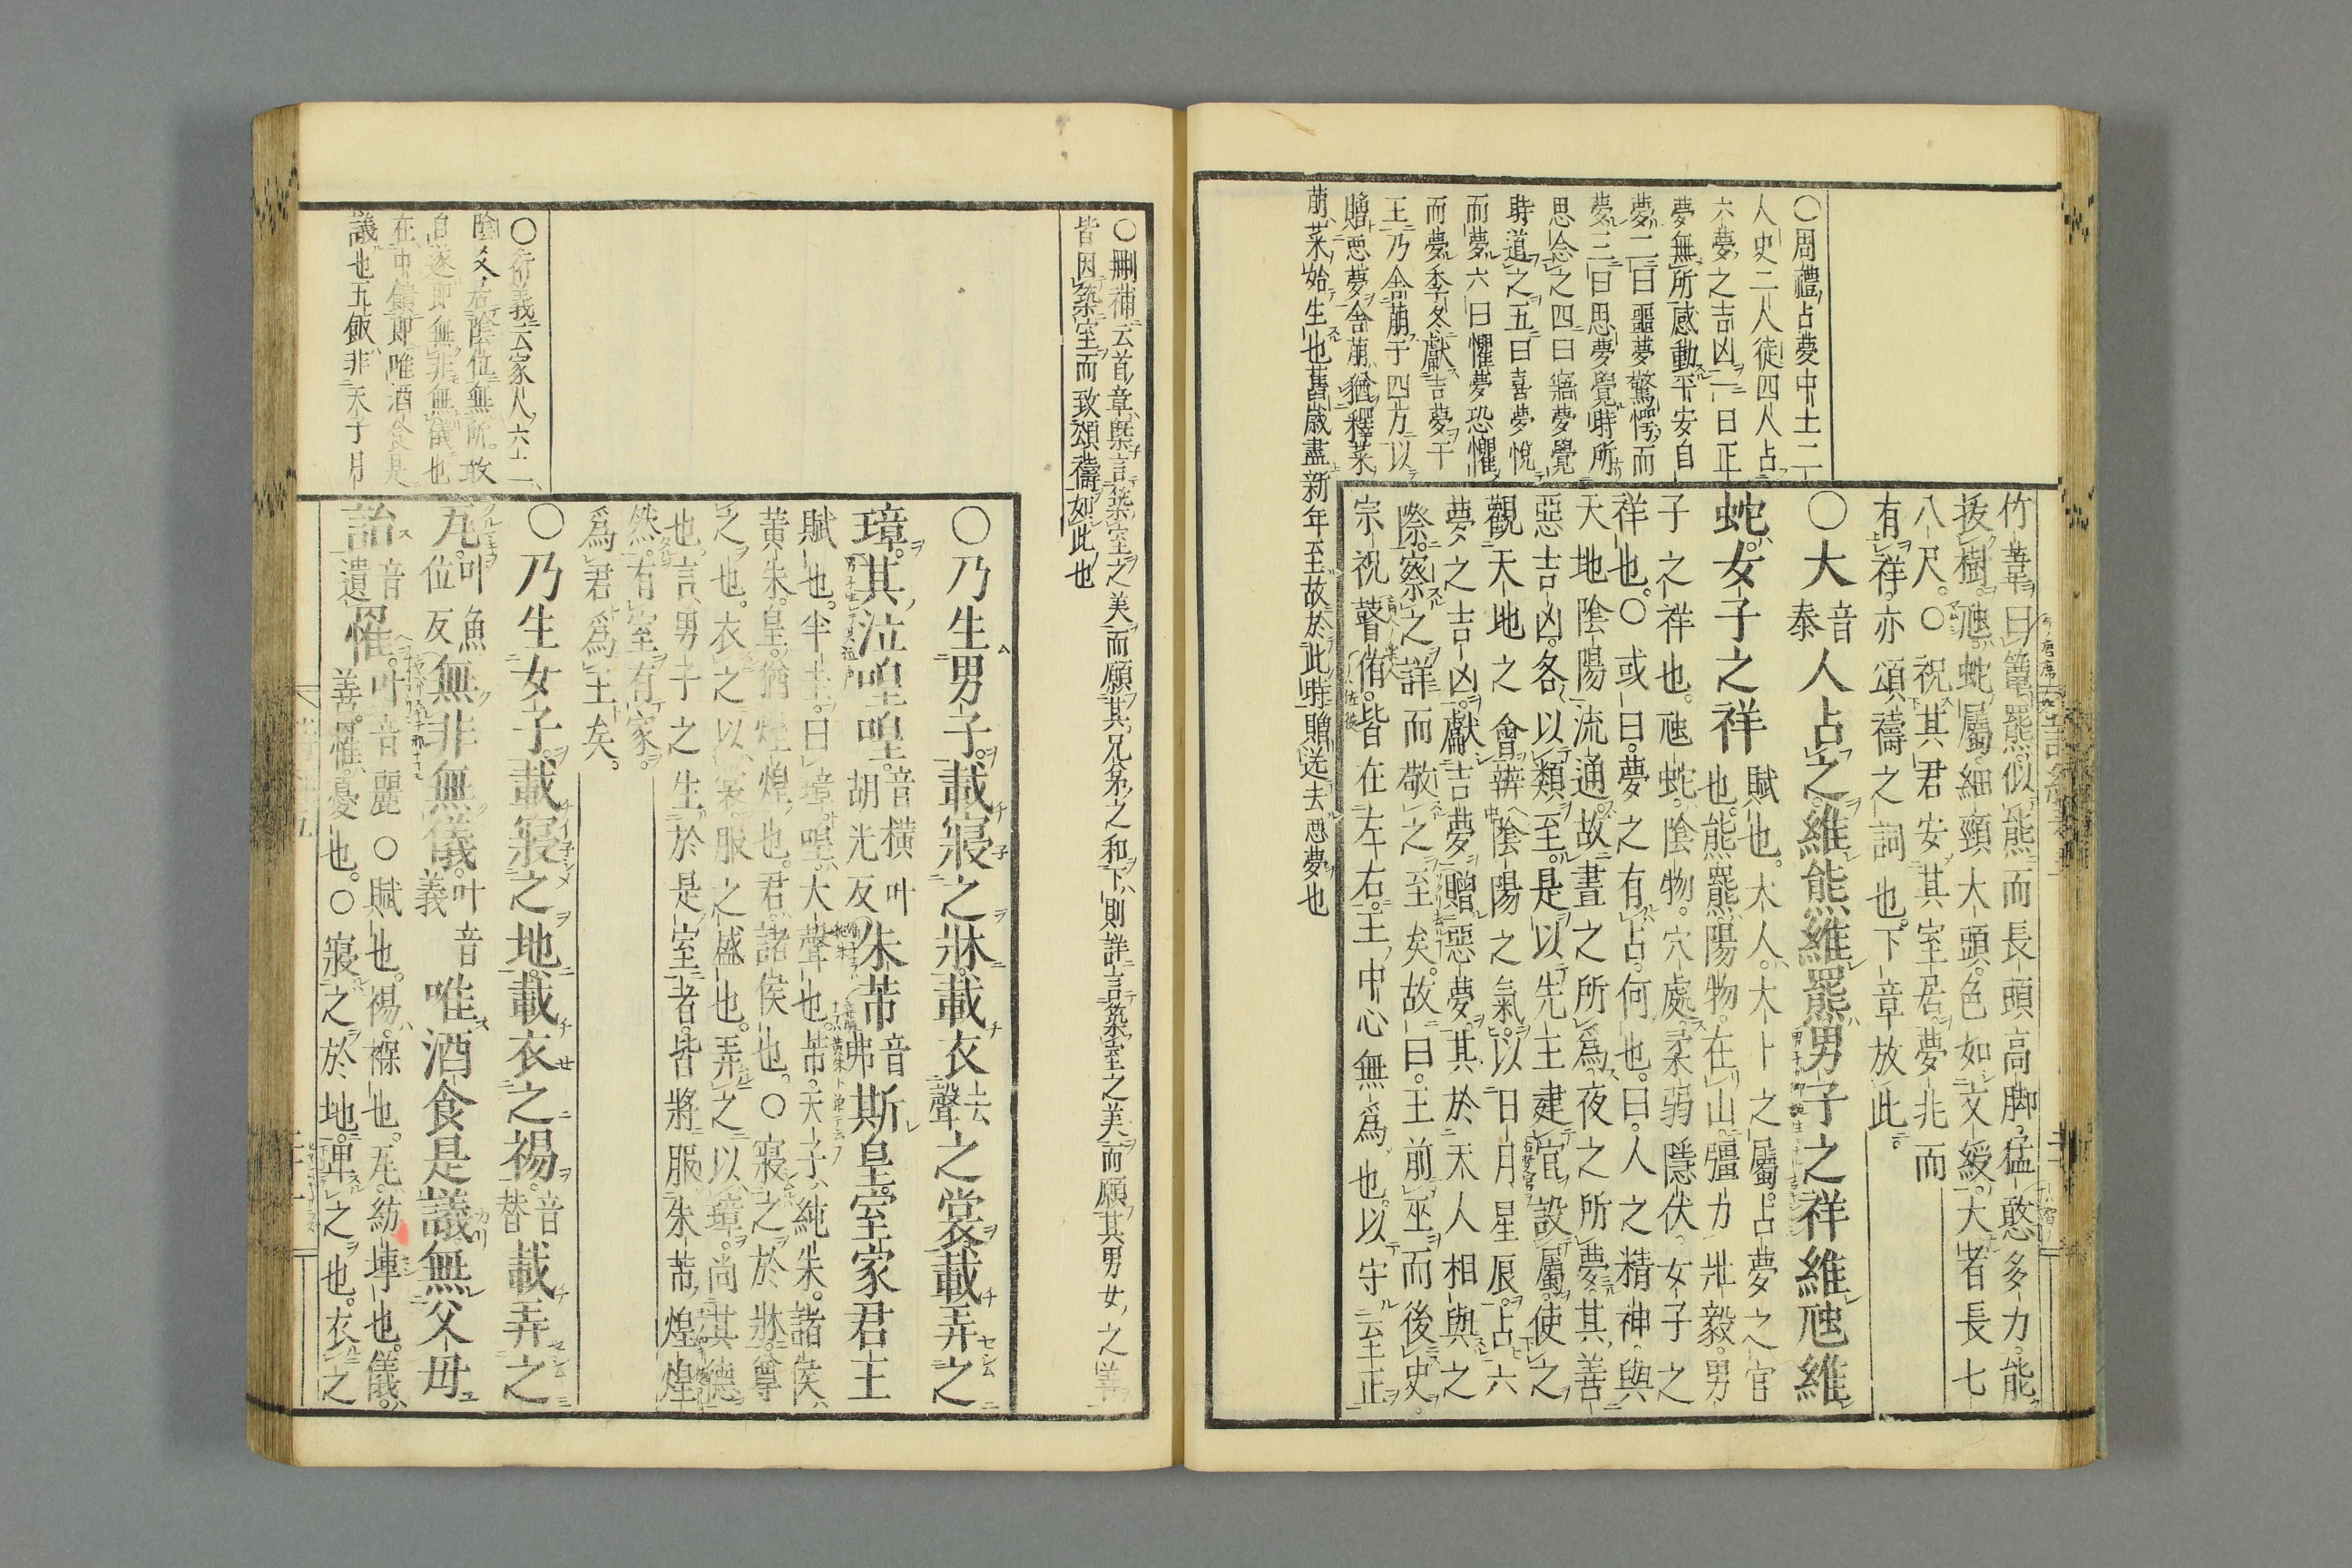 竹葦曰簟羆似熊而長頭高脚猛憨多力能
拔樹虺蛇屬細頸大頭色如文綬大者長七
八尺○祝其君安其室居夢兆而
有祥亦頌禱之詞也下章放此
○大音泰人占之維熊維羆男子之祥維虺維
蛇女子之祥賦也大人大卜之屬占夢之官
也熊羆陽物在山彊力壯毅男
子之祥也虺蛇陰物穴處柔弱隱伏女子之
祥也○或曰夢之有占何也曰人之精神與
天地陰陽流通故晝之所爲夜之所夢其善
惡吉凶各以類至是以先王建官設屬使之
觀天地之會辨陰陽之氣以日月星辰占六
夢之吉凶獻吉夢贈惡夢其於天人相與之
際察之詳而敬之至矣故曰王前巫而後史
宗祝瞽侑皆在左右王中心無爲也以守至正
○周禮占夢中士二
人史二人徒四人占
六夢之吉凶一曰正
夢無所感動平安自
夢二曰噩夢驚愕而
夢三曰思夢覺時所
思念之四曰寤夢覺
時道之五曰喜夢悅
而夢六曰懼夢恐懼
而夢季冬獻吉夢于
王乃舍萌于四方以
贈惡夢舍萌猶釋菜
萌菜始生也舊歲盡新年至故於此時贈送去惡夢也
○刪補云首章槩言築室之美而願其兄弟之和下則詳言築室之美而願其男女之善
皆因築室而致頌禱如此也
○乃生男子載寢之牀載衣去聲之裳載弄之
璋其泣喤喤音橫叶胡光反朱芾音弗斯皇室家君王
賦也半圭曰璋喤大聲也芾天子純朱諸侯
黃朱皇猶煌煌也君諸侯也○寢之於牀尊
之也衣之以裳服之盛也弄之以璋尚其德
也言男子之生於是室者皆將服朱芾煌煌
然有室有家
爲君爲王矣
○乃生女子載寢之地載衣之裼音替載弄之
瓦叶魚位反無非無儀叶音義唯酒食是議無父母
詒音遺罹叶音麗○賦也裼褓也瓦紡塼也儀
善罹憂也○寢之於地卑之也衣之
○衍義云家人六二
陰爻居陰位無所敢
自遂即無非無儀也
在中饋即唯酒食是
議也五飯非天子月